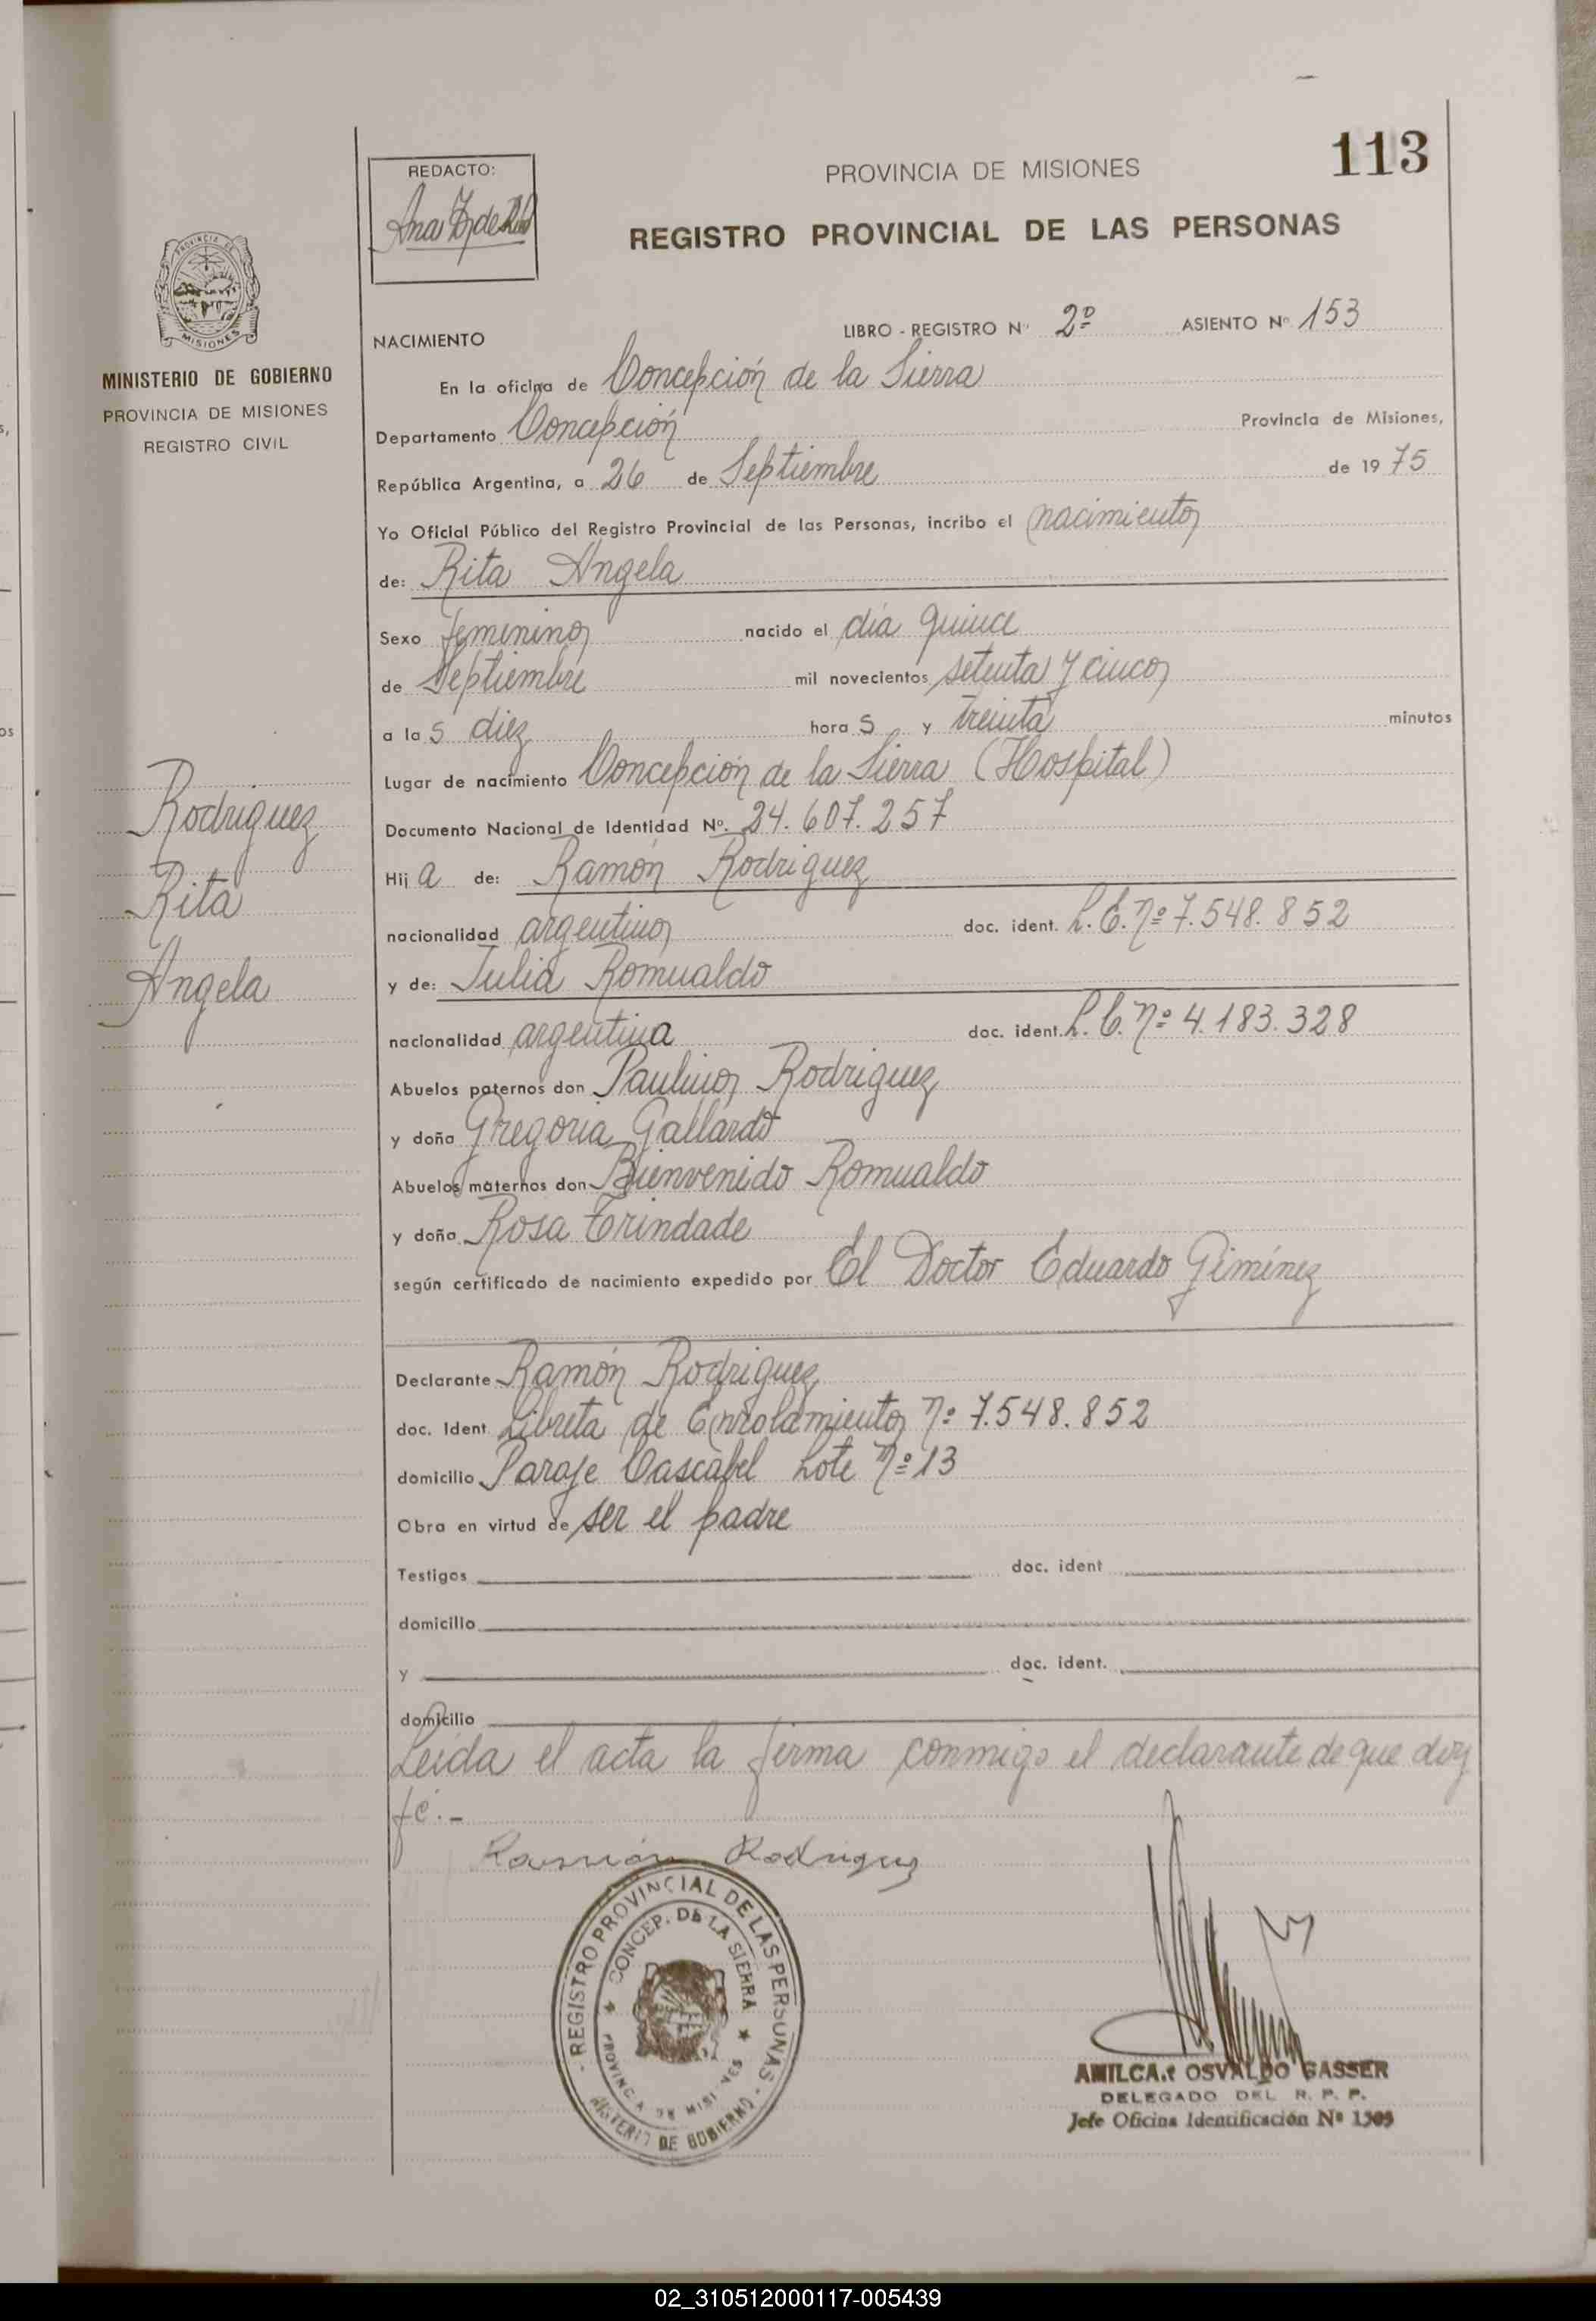 113
REDACTO:
PROVINCIA DE MISIONES
REGISTRO PROVINCIAL DE LAS PERSONAS
PROVINCIA DE
MISIONES
MINISTERIO DE GOBIERNO
PROVINCIA DE MISIONES
REGISTRO CIVIL
NACIMIENTO LIBRO - REGISTRO Nº 2º ASIENTO Nº 153
En la oficina de Concepción de la Sierra
Departamento Concepción Provincia de Misiones,
República Argentina, a 26 de Septiembre de 1975
Yo Oficial Público del Registro Provincial de las Personas, incribo el nacimiento
de: Rita Angela
Sexo femenino nacido el día quince
de Septiembre mil novecientos setenta y cinco
a las diez horas y treinta minutos
Lugar de nacimiento Concepción de la Sierra (Hospital)
Documento Nacional de Identidad Nº. 24.607.257
Hija de: Ramón Rodriguez
nacionalidad argentino doc. ident. L.E. Nº 7.548.852
y de: Julia Romualdo
nacionalidad argentina doc. ident. L.C. Nº 4.183.328
Abuelos paternos don Paulino Rodriguez
y doña Gregoria Gallardo
Abuelos maternos don Bienvenido Romualdo
y doña Rosa Trindade
según certificado de nacimiento expedido por El Doctor Eduardo Giménez
Rodriguez
Rita
Angela
Declarante Ramón Rodriguez
doc. Ident. Libreta de Enrolamiento Nº 7.548.852
domicilio Paraje Cascabel Lote Nº 13
Obra en virtud de ser el padre
Testigos doc. ident
domicilio
y doc. ident.
domicilio
Leida el acta la firma conmigo el declarante de que doy
fé.-
Ramón Rodriguez
REGISTRO PROVINCIAL DE LAS PERSONAS
CONCEP. DE LA SIERRA
PROVINCIA DE MISIONES
MINISTERIO DE GOBIERNO
AMILCAR OSVALDO GASSER
DELEGADO DEL R. P. P.
Jefe Oficina Identificación Nº 1305
02_310512000117-005439